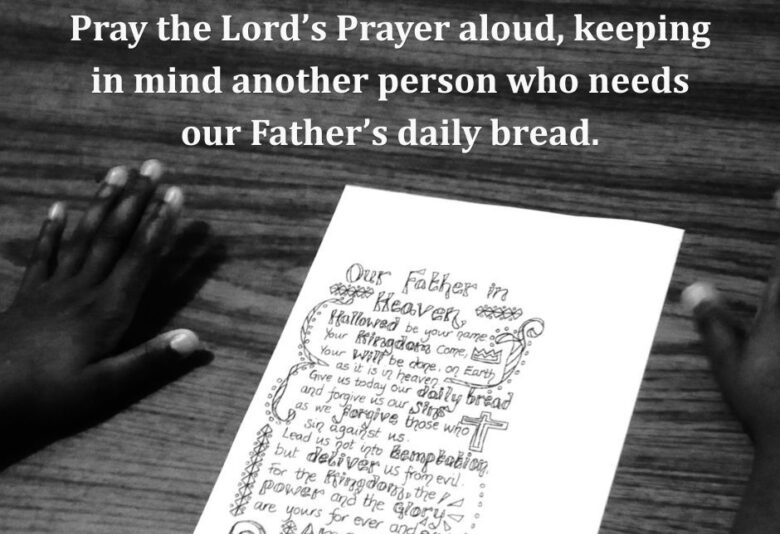 Pray the Lord’s Prayer aloud, keeping
in mind another person who needs
our Father’s daily bread.
Our Father in
Heaven,
Hallowed be your name
Your Kingdom Come,
Your Will be done, on Earth
as it is in heaven
Give us today our daily bread
and forgive us our Sins
as we forgive those who
sin against us.
Lead us not into temptation,
but deliver us from evil.
For the Kingdom, the
power and the Glory
are yours for ever and